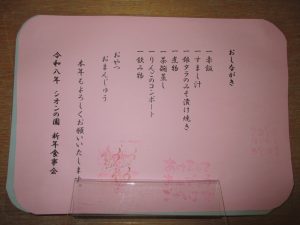 おしながき
一 赤飯
一 すまし汁
一 銀ダラのみそ漬け焼き
一 煮物
一 茶碗蒸し
一 りんごのコンポート
一 飲み物
おやつ
おまんじゅう
本年もよろしくお願いいたします。
令和八年 シオンの園 新年食事会